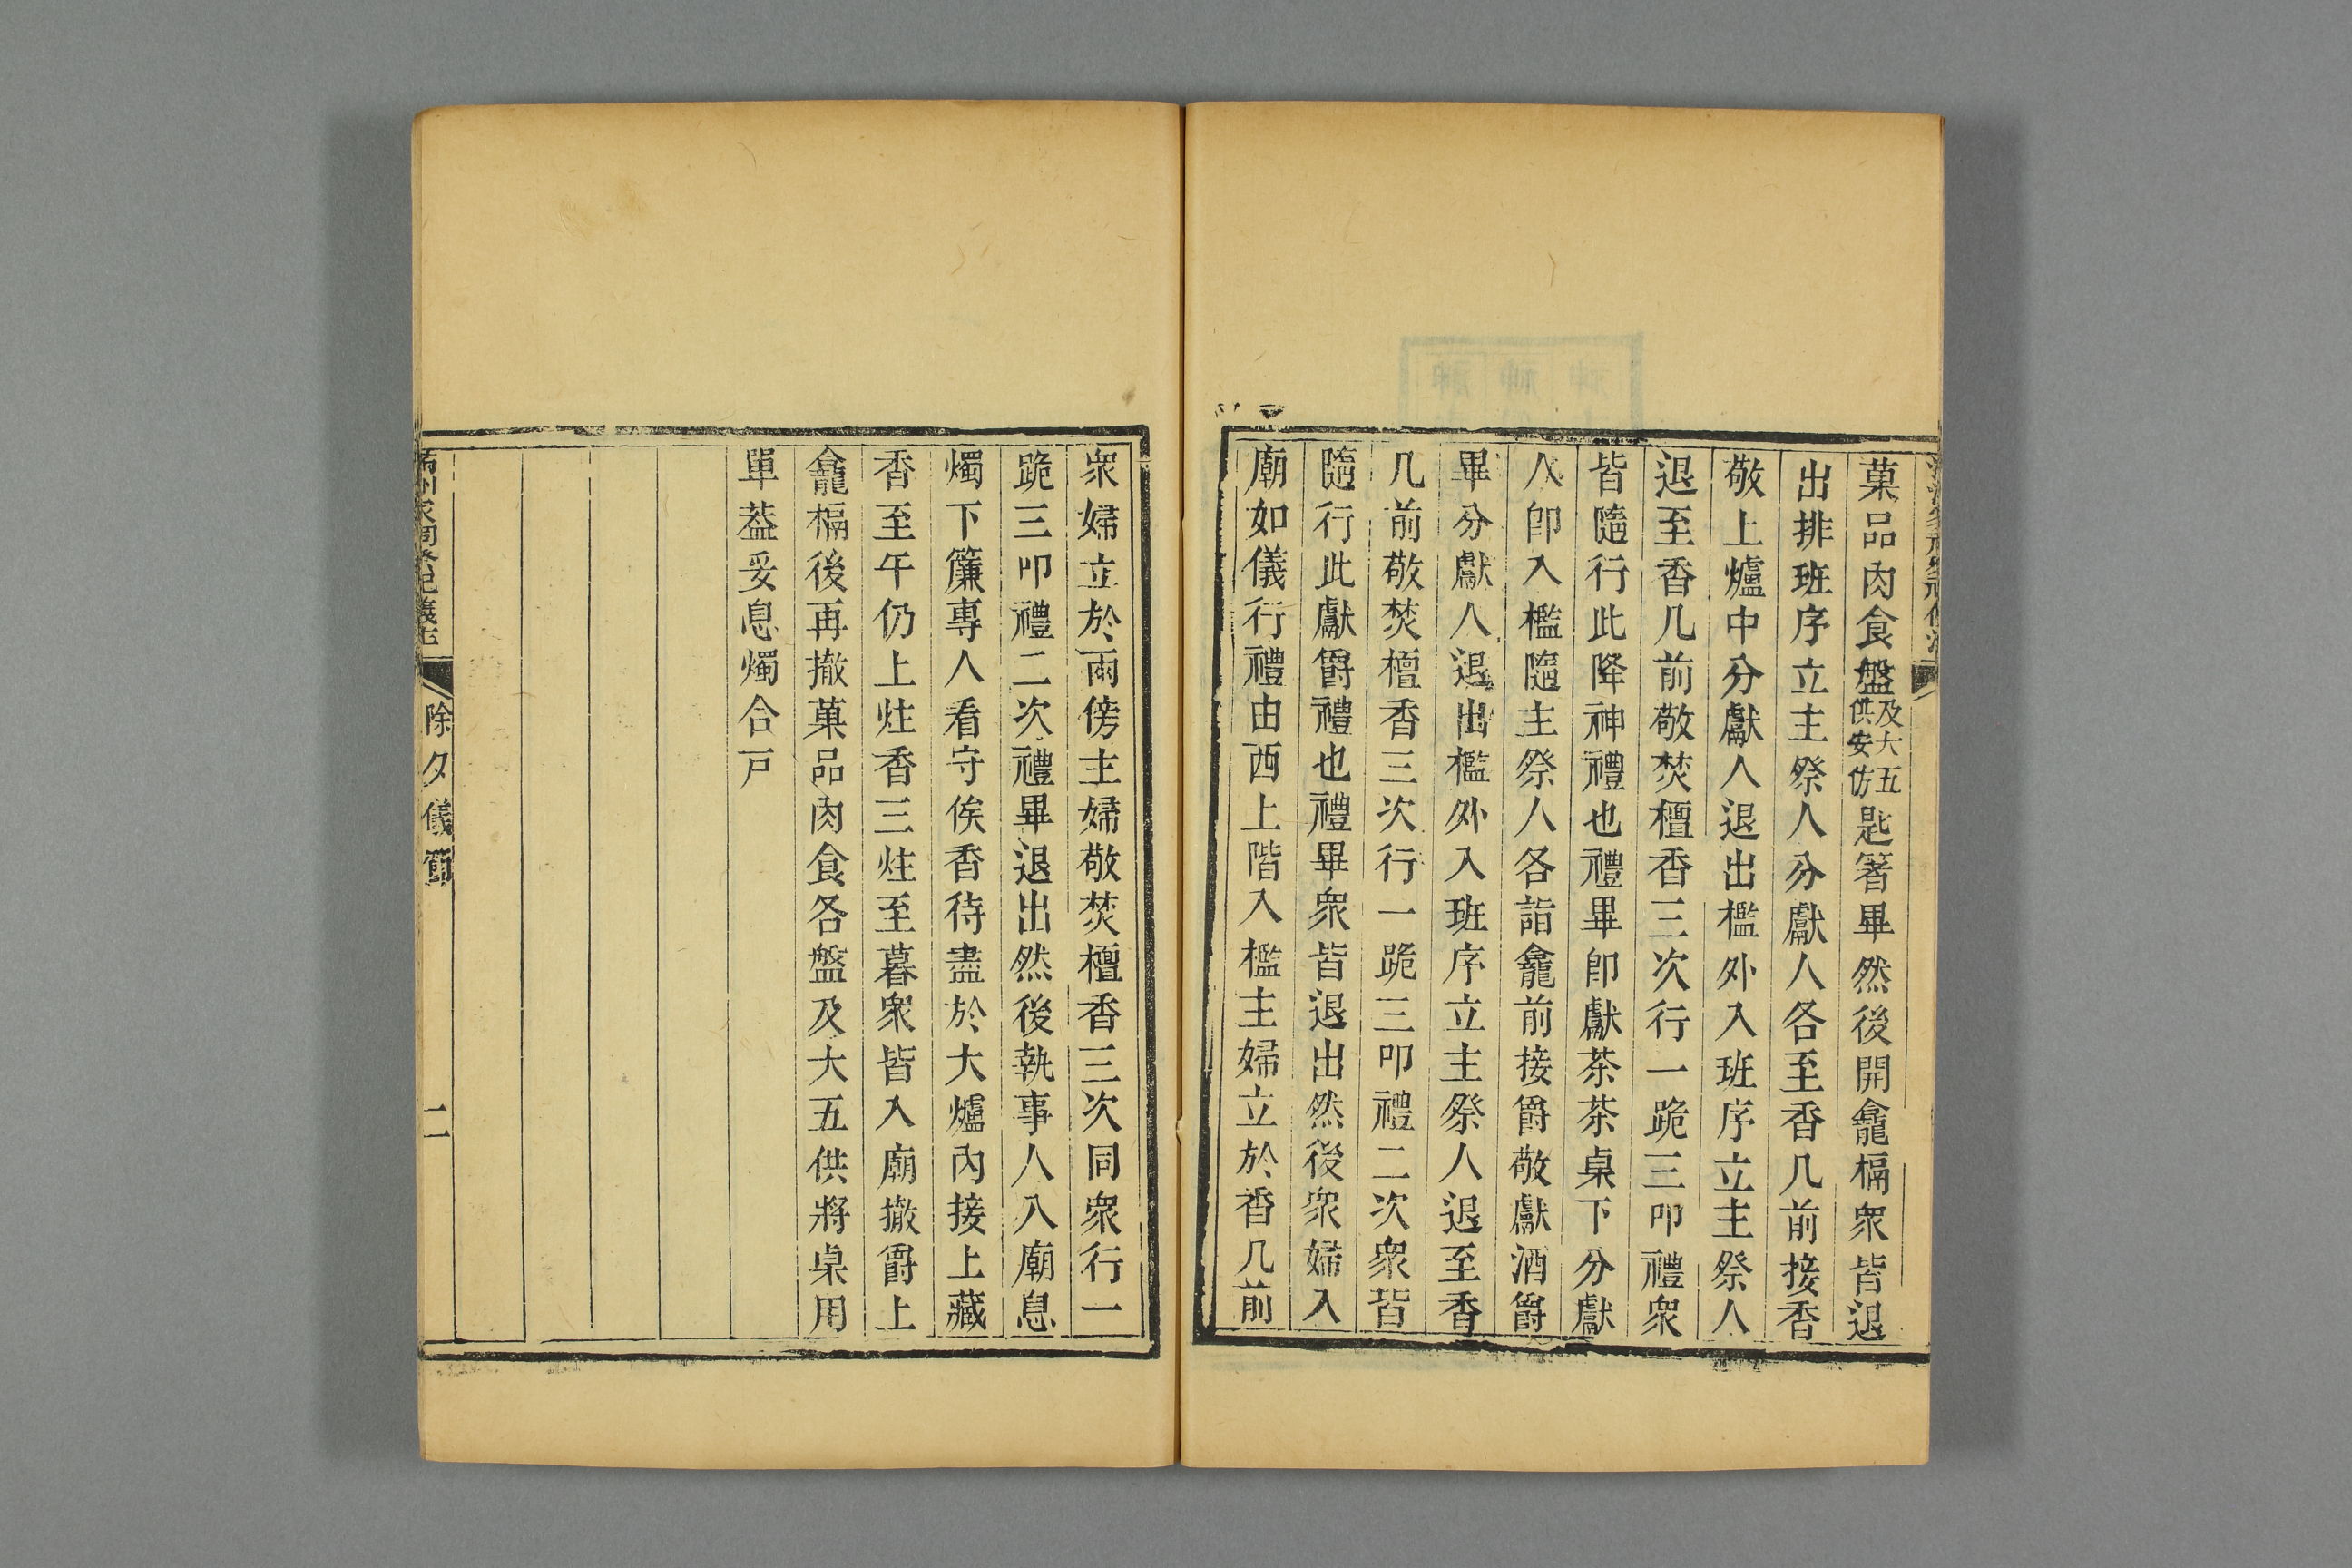 菓品肉食盤及大五供安仿匙箸畢然後開龕槅衆皆退
出排班序立主祭人分獻人各至香几前接香
敬上爐中分獻人退出檻外入班序立主祭人
退至香几前敬焚檀香三次行一跪三叩禮衆
皆隨行此降神禮也禮畢卽獻茶茶桌下分獻
人卽入檻隨主祭人各詣龕前接爵敬獻酒爵
畢分獻人退出檻外入班序立主祭人退至香
几前敬焚檀香三次行一跪三叩禮二次衆皆
隨行此獻爵禮也禮畢衆皆退出然後衆婦入
廟如儀行禮由西上階入檻主婦立於香几前
衆婦立於兩傍主婦敬焚檀香三次同衆行一
跪三叩禮二次禮畢退出然後執事人入廟息
燭下簾專人看守俟香待盡於大爐內接上藏
香至午仍上炷香三炷至暮衆皆入廟撤爵上
龕槅後再撤菓品肉食各盤及大五供將桌用
單葢妥息燭合戸
除夕儀節
二